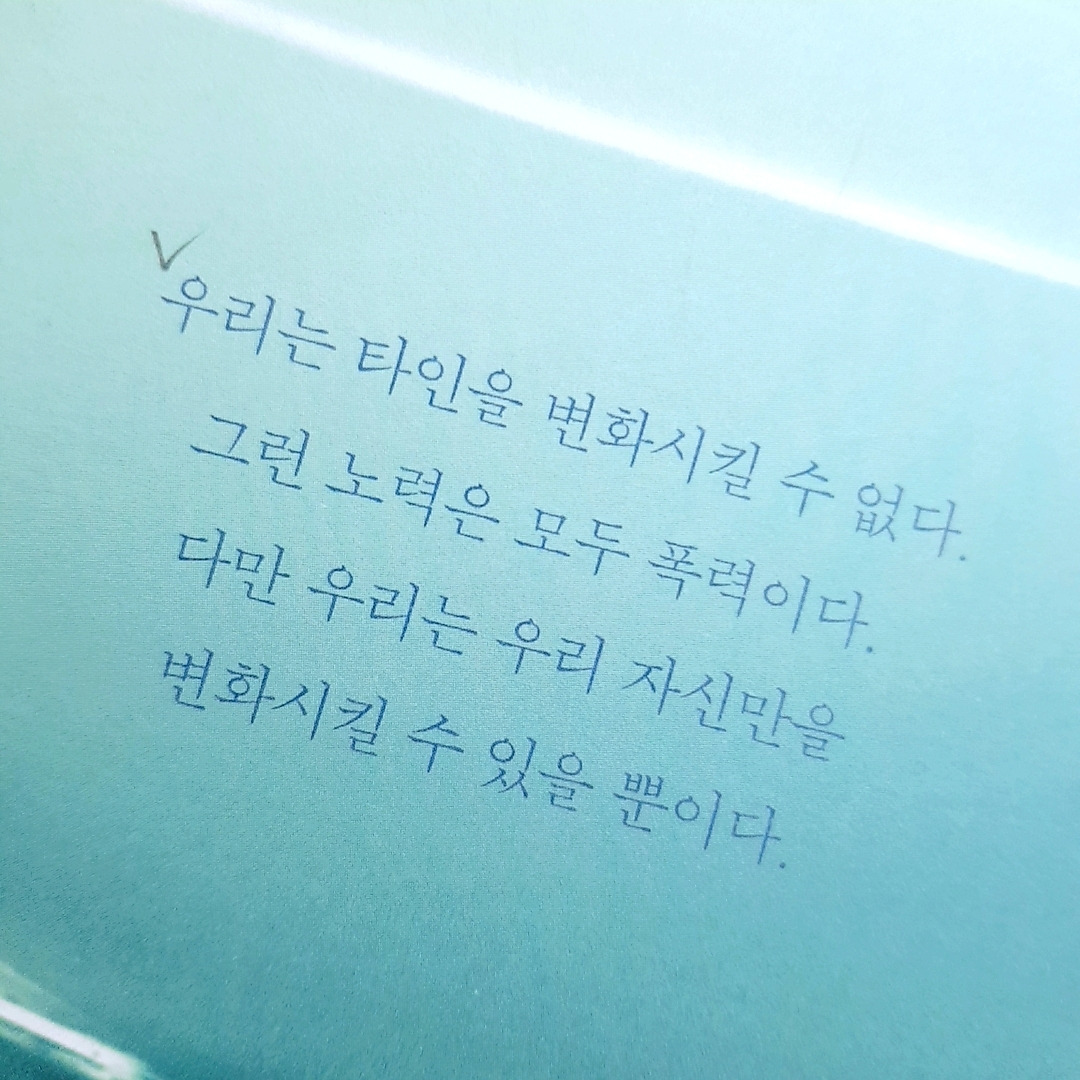 우리는 타인을 변화시킬 수 없다.
그런 노력은 모두 폭력이다.
다만 우리는 우리 자신만을
변화시킬 수 있을 뿐이다.